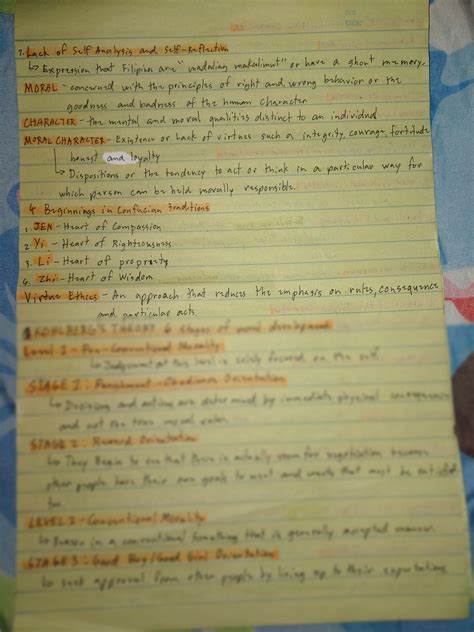 7. Lack of Self Analysis and Self-Reflection
↳ Expression that Filipins are "madaling makalimut" or have a short memory.
MORAL - concerned with the principles of right and wrong behavior or the
goodness and badness of the human character
CHARACTER - the mental and moral qualities distinct to an individual
MORAL CHARACTER - Existence or Lack of virtues such a integrity, courage, fortitude
honest and loyalty
↳ Dispositions or the tendency to act or think in a particular way for
which person can be held morally responsible.
4 Beginnings in Confucian traditions
1. JEN - Heart of Compassion
2. Yi - Heart of Righteousness
3. Li - Heart of propriety
4. Zhi - Heart of Wisdom
Virtue Ethics - An approach that reduces the emphasis on rules, consequence
and particular acts.
KOHLBERG'S THEORY 6 stages of moral development
Level 1 - Pre-Conventional Morality
↳ Judgement at this level is solely focused on the self.
STAGE 1: Punishment-Obedience Orientation
↳ Decisions and actions are determined by immediate physical consequences
and not the true moral value.
STAGE 2: Reward Orientation
↳ They Begin to see that there is actually room for negotiation because
other people have their own goals to meet and wants that must be satisfied
too.
LEVEL 2 - Conventional Morality
↳ Reason in a conventional something that is generally accepted manner.
STAGE 3: Good Boy/Good Girl Orientation
↳ seek approval from other people by living up to their expectations